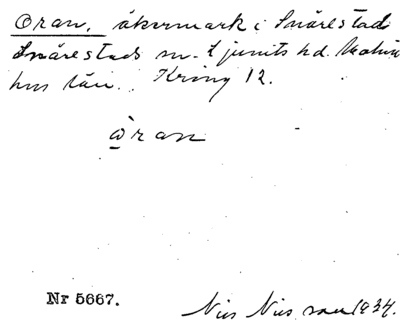 Oran, åkermark i Snårestad
Snårestads sn. Ljunits hd. Malmö
hus län. Kring 12.
òran
Nr 5667.
Nils Nilsson 1934.